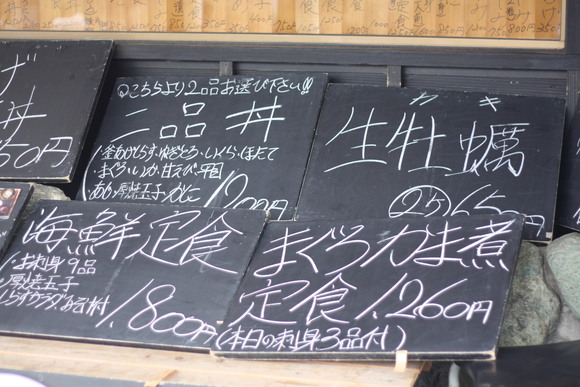 丼
50円
こちらより2品お選び下さい!!
二品丼
釜あげしらす・ゆきとろ・いくら・ほたて
まぐろ・いか・甘えび・平目
あじ・厚焼玉子・かに
1,200円
カキ
生牡蠣
②ケ 650円
海鮮定食
お刺身9品
厚焼玉子
しらすサラダ、お吸付
1,800円
まぐろカマ煮
定食 1,260円
(本日の刺身3品付)